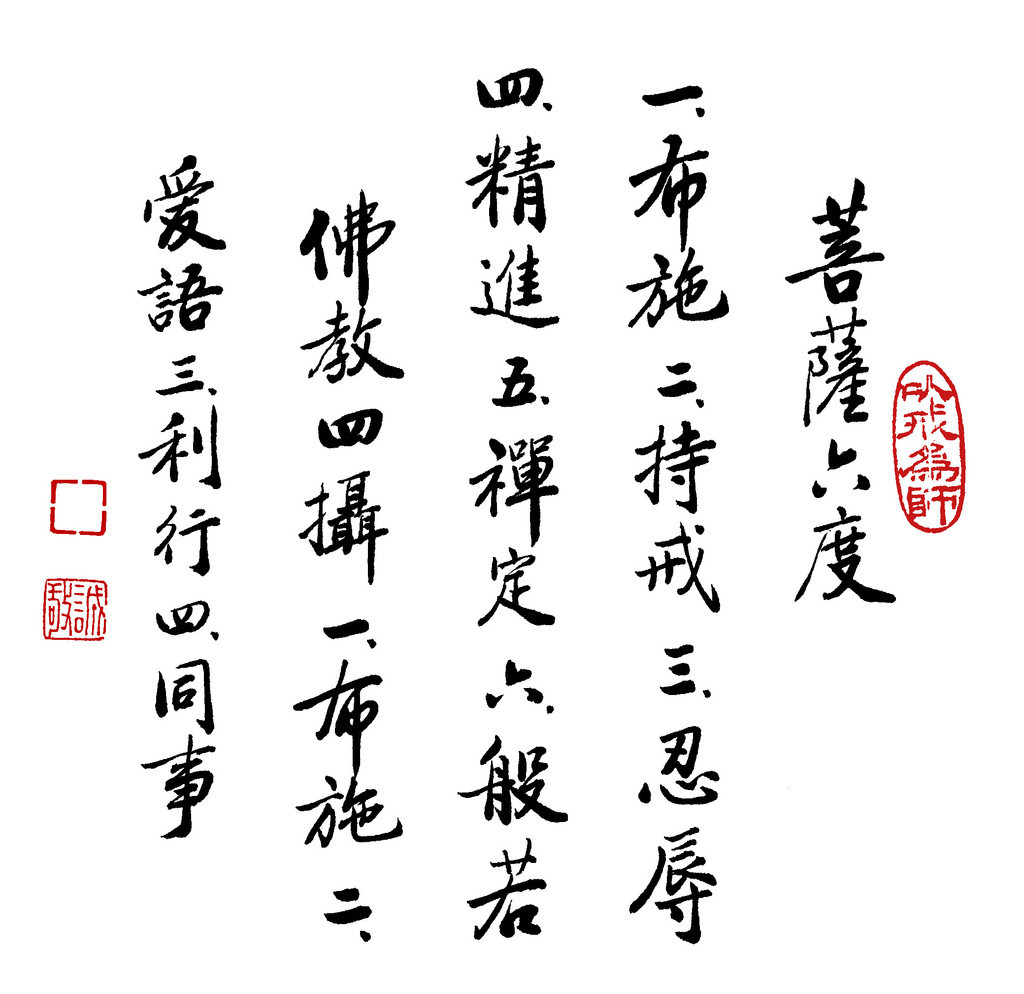 菩薩六度
以戒為師
一、布施二、持戒三、忍辱
四、精進五、禪定六、般若
佛教四攝一、布施二、
愛語三、利行四、同事
誠敬